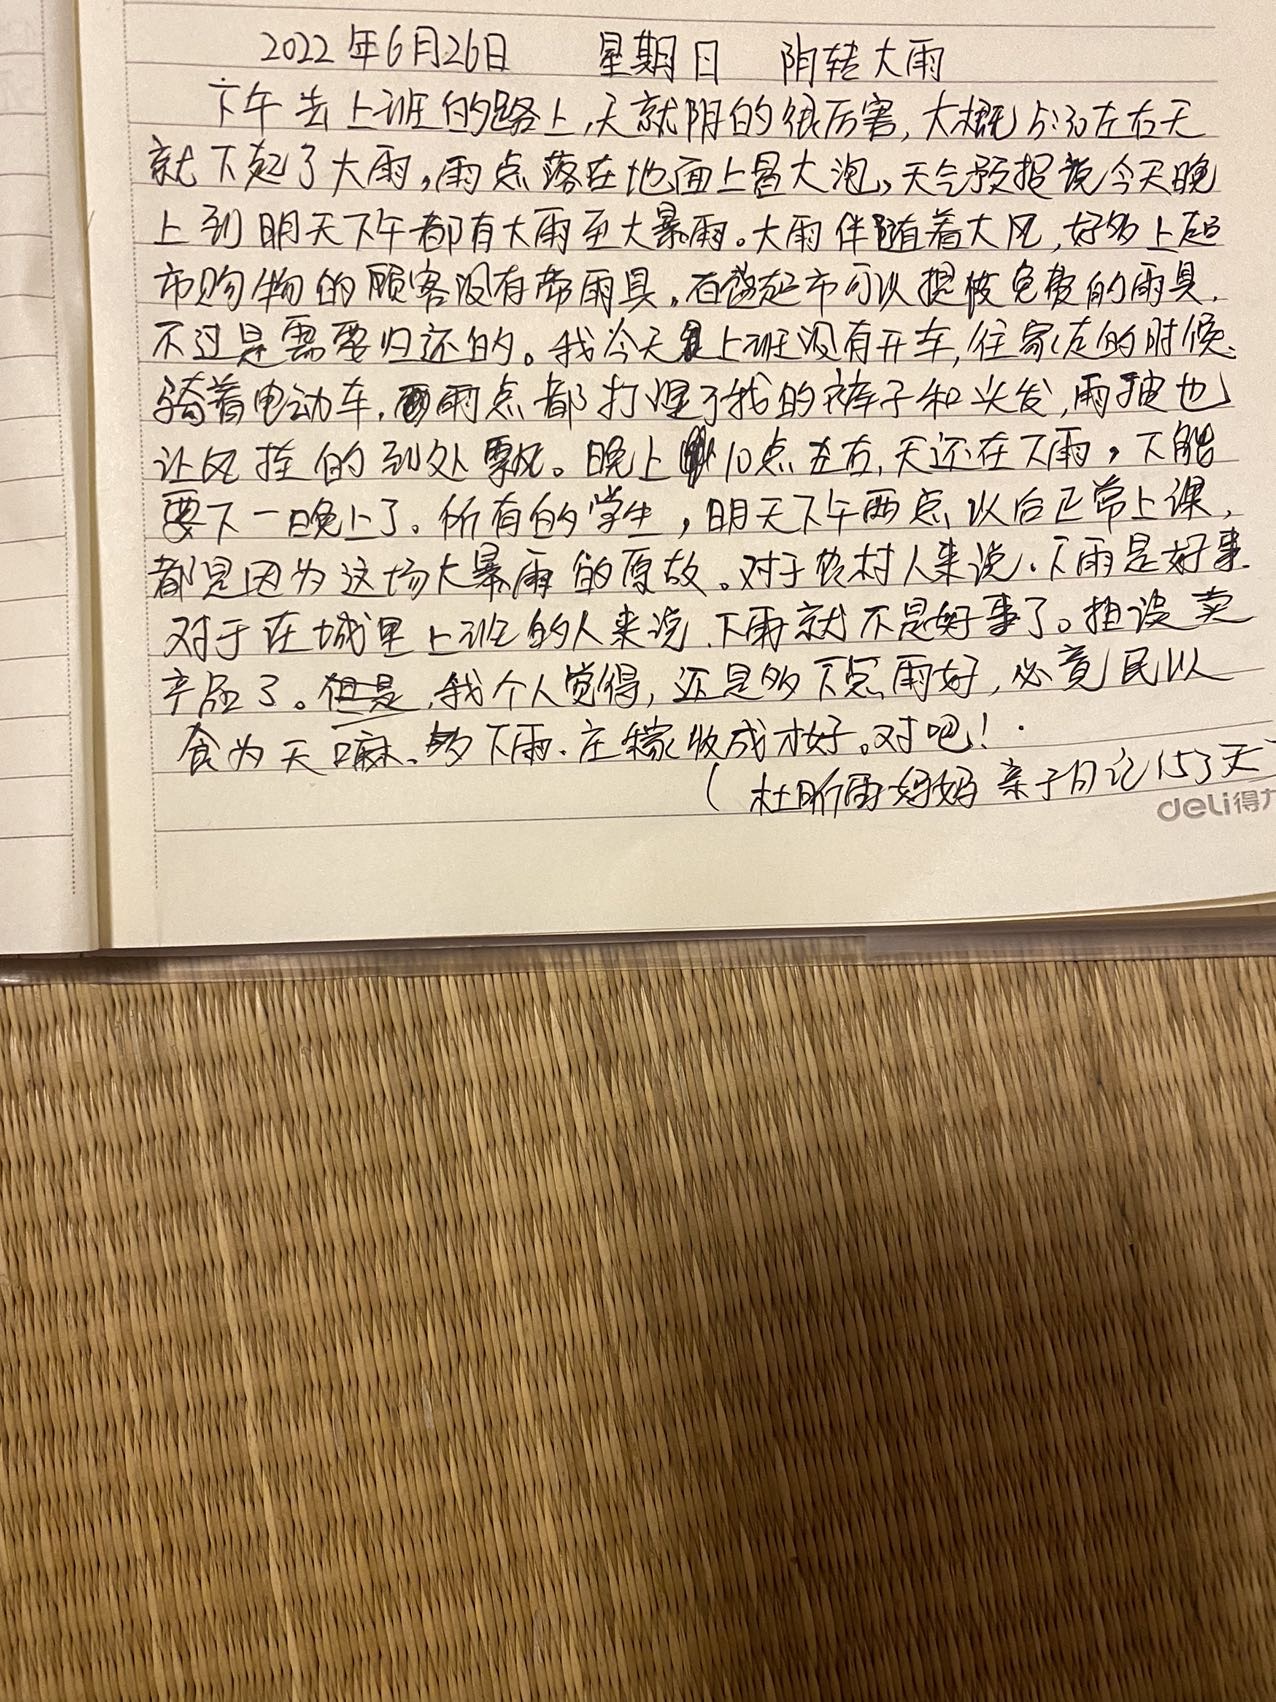 2022年6月26日 星期日 阴转大雨
下午去上班的路上,天就阴的很厉害,大概5:30左右天
就下起了大雨,雨点落在地面上冒大泡,天气预报说今天晚
上到明天下午都有大雨至大暴雨。大雨伴随着大风,好多上超
市购物的顾客没有带雨具,在超市可以提免费的雨具,
不过是需要归还的。我今天上班没有开车,往家走的时候
骑着电动车,雨点都打湿了我的裤子和头发,雨披也
让风挂的到处飘。晚上10点左右,天还在下雨,下能
要下一晚上了。所有的学生,明天下午两点以后正常上课,
都是因为这场大暴雨的原故。对于农村人来说,下雨是好事.
对于在城里上班的人来说,下雨就不是好事了。担误卖
产品了。但是,我个人觉得,还是多下点雨好,必竟民以
食为天嘛、多下雨.庄稼收成才好。对吧!
(杜昕雨妈妈 亲子日记153天
deli得力